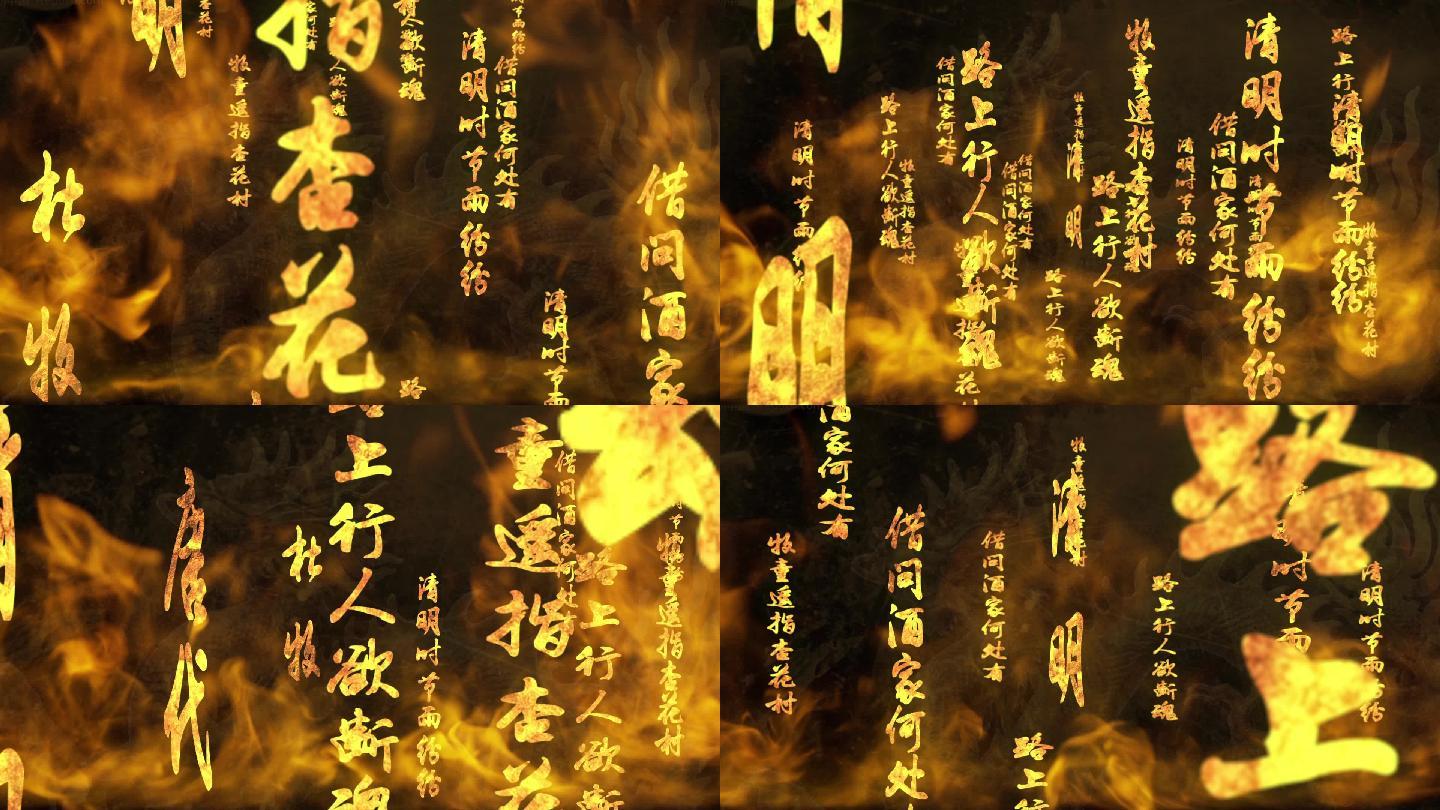 明
指
杏
花
杜
牧
牧童遥指杏花村
人欲断魂
清明时节雨纷纷
借问酒家何处有
清明时节雨
借问酒家
路
清
明
清明时节雨纷纷
路上行人欲断魂
牧童遥指杏花村
借问酒家何处有
路上行人欲断魂
借问酒家何处有
借问酒家何处有
牧童遥指
清
明
路上行人欲断魂
路上行人欲断魂
牧童遥指杏花村
清明时节雨纷纷
借问酒家何处有
清明时节雨纷纷
路上行
清明时节雨纷纷
牧童遥指杏花村
唐
代
杜
牧
路上行人欲断魂
清明时节雨纷纷
童遥指杏花
借问酒家何处有
路上行人欲断
牧童遥指杏花村
酒家何处有
牧童遥指杏花村
借问酒家何处有
借问酒家何处有
清
明
路上
路上行人欲断魂
路
上
时节雨
清明时节雨纷纷